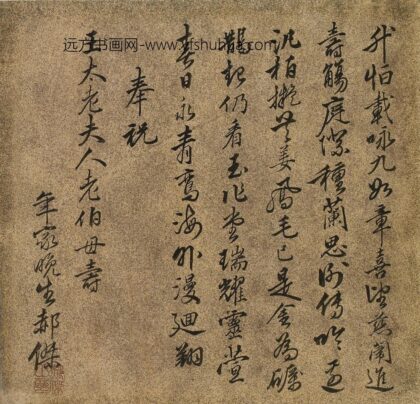 远方书画网-www.yfshuhua.com/
升恒載詠九如章喜望慈闈進
壽觴庭際種蘭思謝傅吟邊
汎柏擬共姜鳳毛已是金為礪
鶴髮仍看玉作堂瑞耀靈萱
春日永青鸞海外漫迴翔
奉祝
王太老夫人老伯母壽
年家晚生郝傑